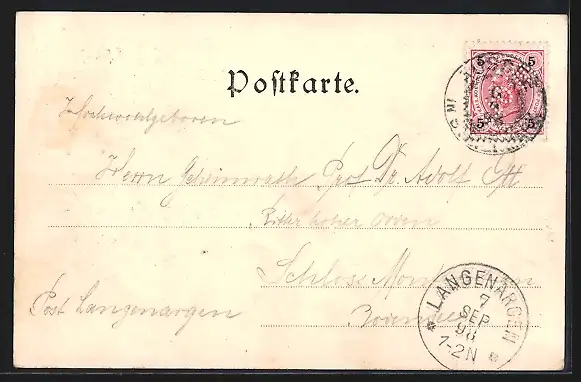 Postkarte.
5 5
5 5
Hochwohlgeboren
Herrn Geheimrath Prof. Dr. Adolf Ott
Ritter hoher Orden
Schloss
Post Langenargen
Bodensee
LANGENARGEN
7
SEP
98
1-2N